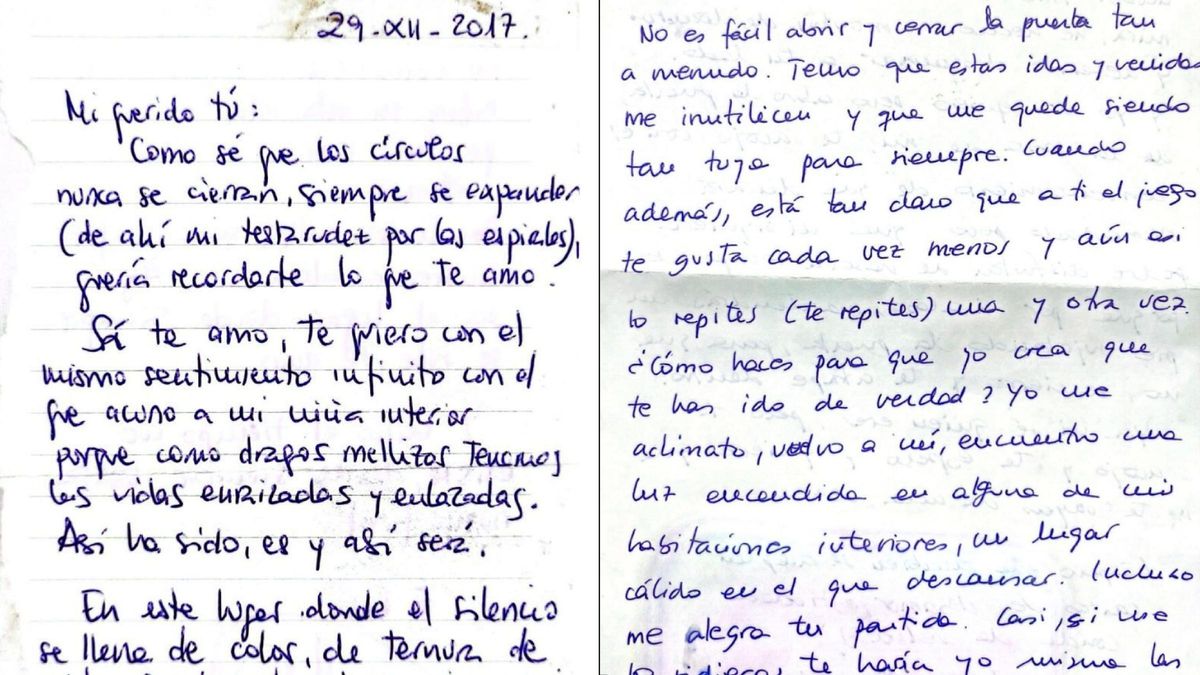 29-XII-2017.
Mi querido tú:
Como sé que los círculos
nunca se cierran, siempre se expanden
(de ahí mi testarudez por las espirales),
quería recordarte lo que te amo.
Sí te amo, te quiero con el
mismo sentimiento infinito con el
que acuno a mi niña interior
porque como dragos mellizos tenemos
las vidas enraizadas y enlazadas.
Así ha sido, es y así será.
En este lugar donde el silencio
se llena de color, de ternura de
No es fácil abrir y cerrar la puerta tan
a menudo. Temo que estas idas y venidas
me inutilicen y que me quede siendo
tan tuya para siempre. Cuando
además, está tan claro que a ti el juego
te gusta cada vez menos y aún así
lo repites (te repites) una y otra vez.
¿Cómo haces para que yo crea que
te has ido de verdad? Yo me
aclimato, vuelvo a mí, encuentro una
luz encendida en alguna de mis
habitaciones interiores, un lugar
cálido en el que descansar. Incluso
me alegra tu partida. Casi, si me
lo pidieras, te haría yo misma las